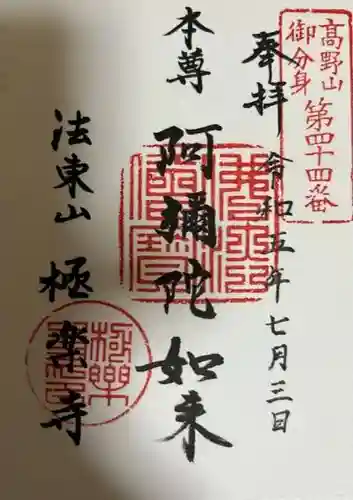 高野山
御分身
第四十四番
奉拝
令和五年七月三日
本尊
阿彌陀如来
法東山
極楽寺
極樂